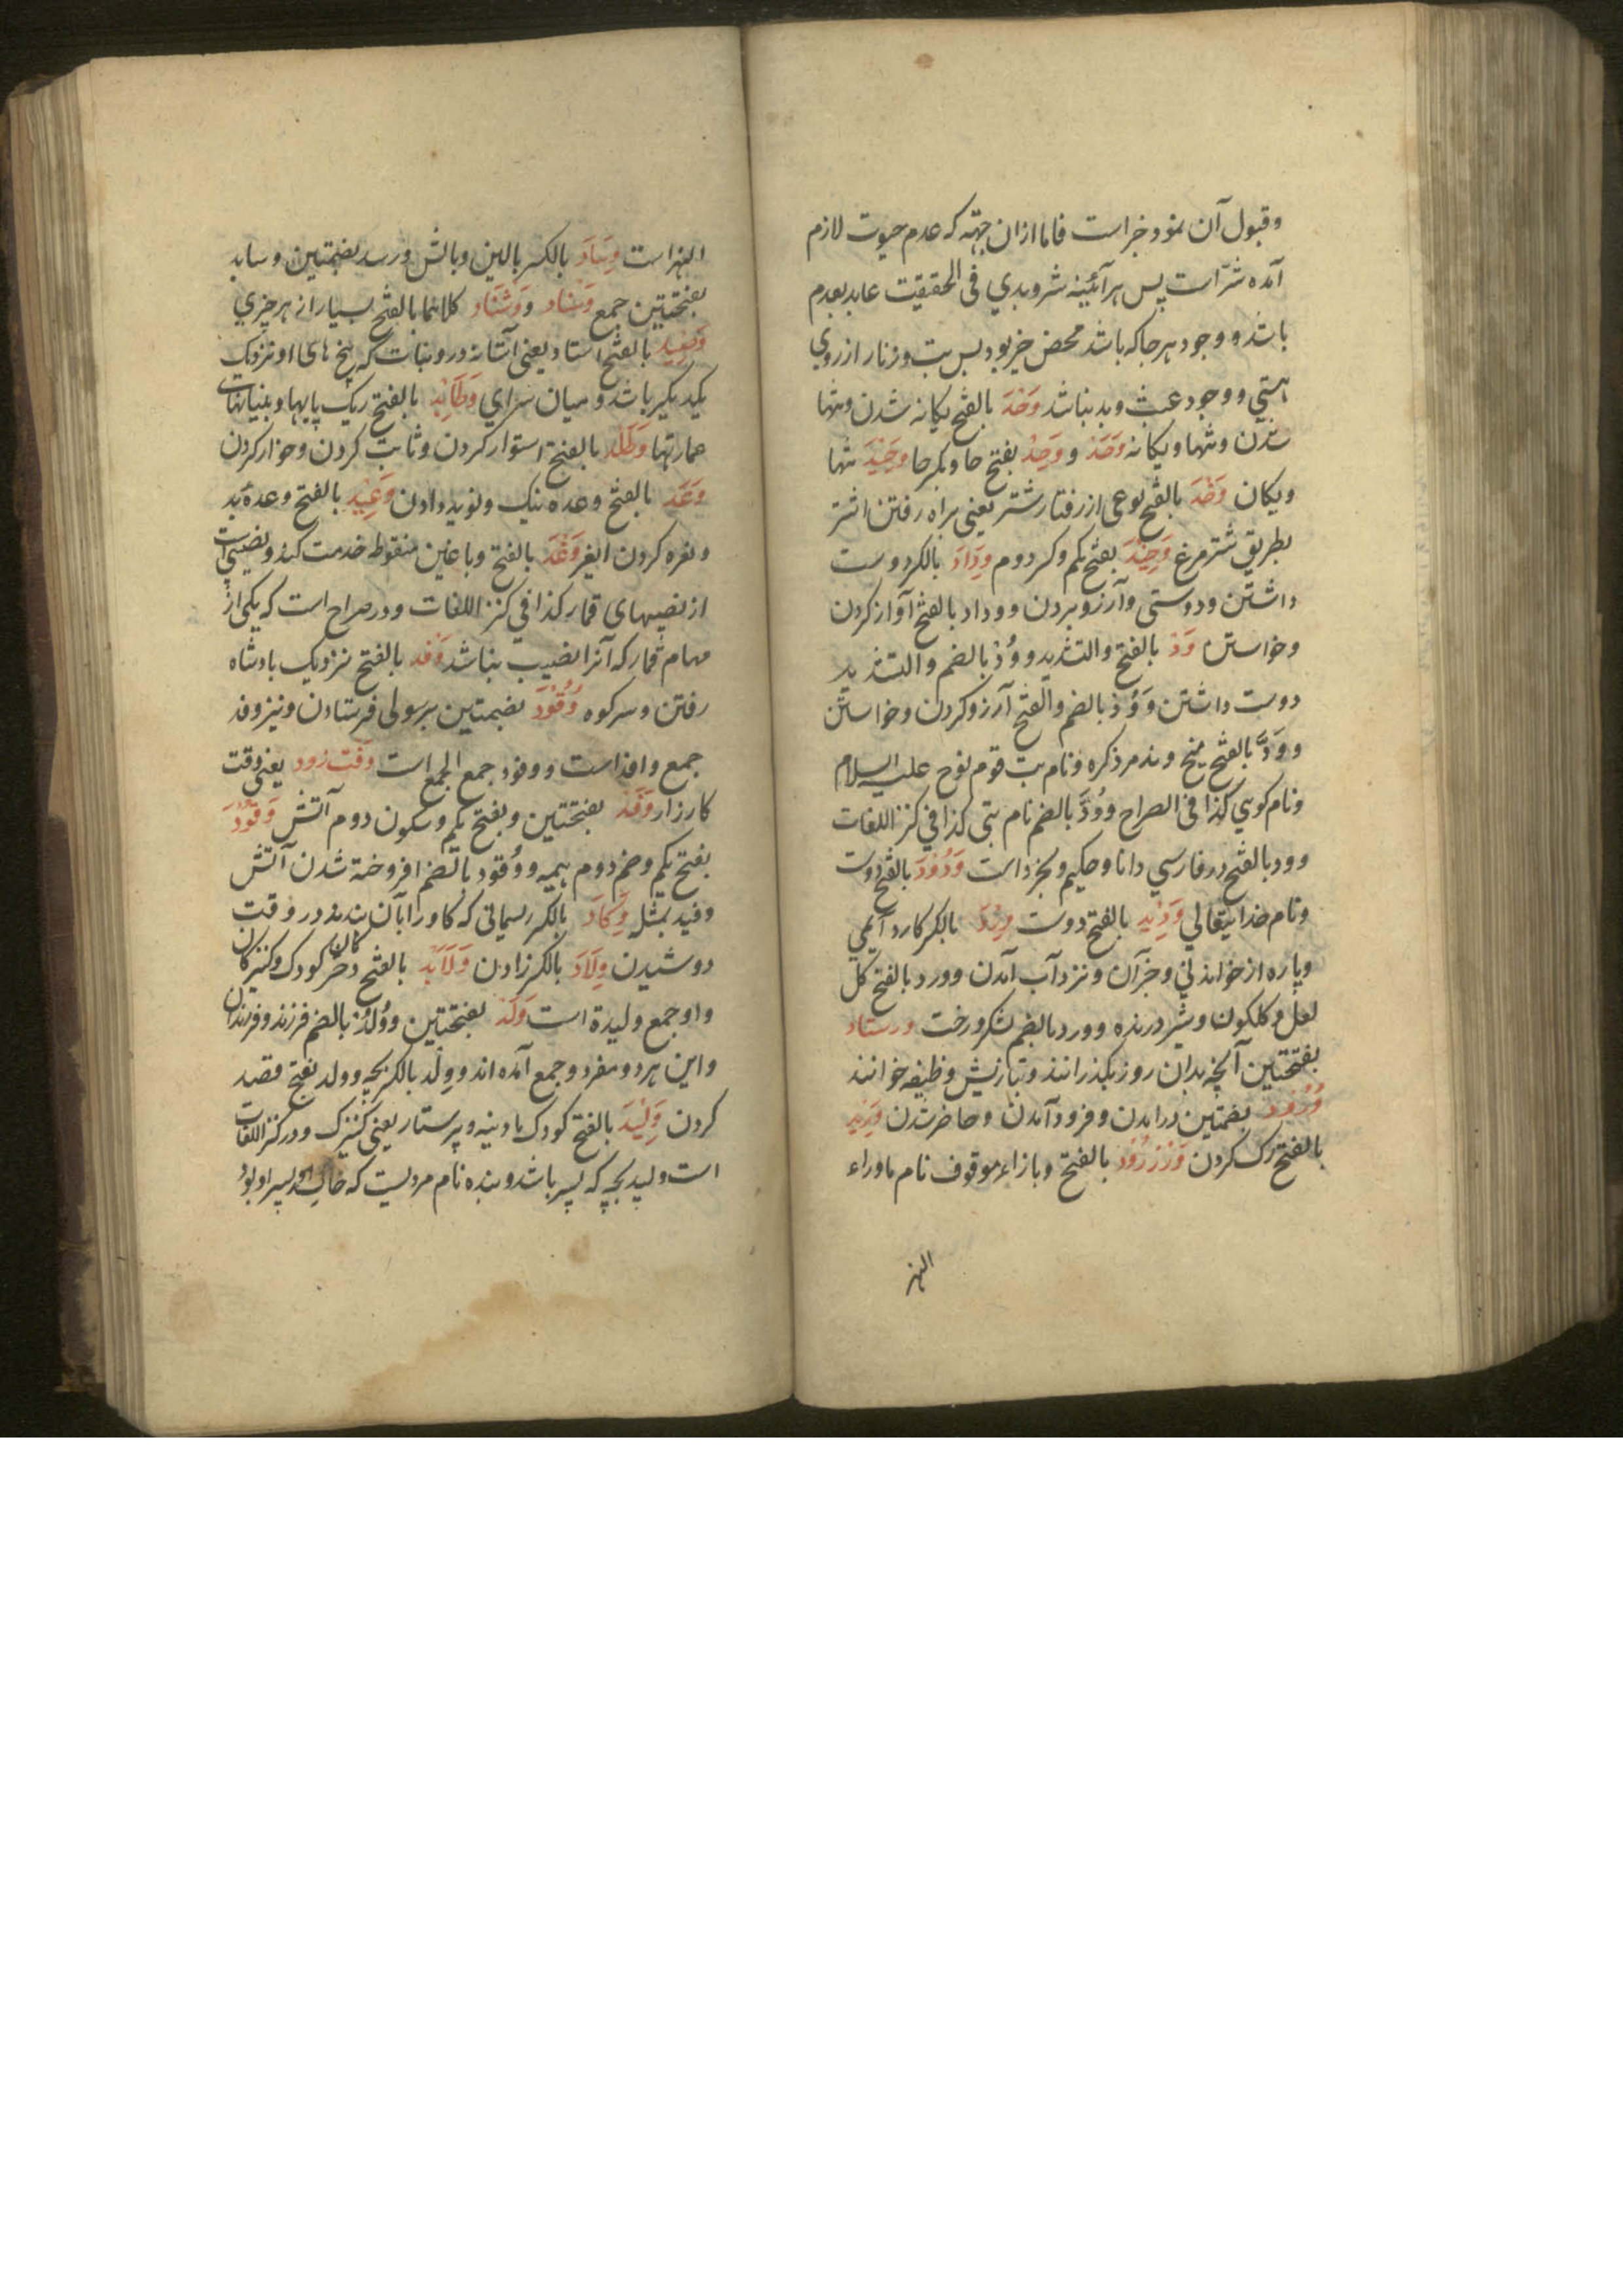 وقبول آن نمود خیر است فاما ازان جهته که عدم حیوت لازم
آمده شرّ است پس هر آئینه شر و بدي فی الحقیقیت عاید بعدم
باشد و وجود هر جا که باشد محض خیر بود پس بت و زنار از روي
هستي و وجود عبث و بد نباشد وَحْدَ بالفتح یکانه شدن و تنها
شدن و تنها و یکانه وَحَدْ و وَحِدْ بفتح حا و بکسر حا وَحِیْدَ تنها
ویکان وَخْدَ بالفتح نوعی از رفتار شتر یعنی براه رفتن اشتر
بطریق شتر مرغ وَخِیْدَ بفتح یکم و کسر دوم وِدَادَ بالکسر دوست
داشتن و دوستی و آرزو بردن و وداد بالفتح آواز کردن
و خواستن وَدْ بالفتح والتشدید و وُدْ بالضم والتشدید
دوست داشتن و وَوُدْ بالضم والفتح آرزو کردن و خواستن
و وَدَّ بالفتح میخ و نام بت قوم نوح علیه السلام
و نام کوي کذا فی الصراح و وُدَّ بالضم نام بتی کذا فی کنز اللغات
و ود بالفتح در فارسي دانا و حکیم و بخرد است وَدُوْدَ بالفتح دوست
و نام خدایتعالي وَدِیْد بالفتح دوست وِرْدَ بالکسر کار دائمي
و پاره از خواندنی و جز آن و نزد آب آمدن و ورد بالفتح کل
لعل و کلکون و شیر درنده و ورد بالضم شکر و رخت ورستاد
بفتحتین آنچه بدان روز بگذرانند و تبازیش وظیفه خوانند
وُرُوْد بضمتین در آمدن و فرود آمدن و حاضر شدن وَرِیْد
بالفتح رک کردن وَرْزْرُوْدْ بالفتح و با زاء موقوف نام ماوراء
النهر
النهر است وِسَادَ بالکسر بالین و بالش و رسد بضمتین و ساید
بفتحتین جمع وَسْناد و وَشْنَاد کلاهما بالفتح بسیار از هر چیزي
وَصِیْد بالفتح استاد یعنی آستانه در و بنات که بیخ های او نزدیک
یکدیکر باشد و میان سراي وَطَائِدْ بالفتح ریک پایها و بنیانهات
عمارتها وَطْدَ بالفتح استوار کردن و ثابت کردن و خوار کردن
وَعَد بالفتح وعده نیک و نوید دادن وَعِیْد بالفتح وعدهٔ بد
و نعره کردن الغیر وَغْدَ بالفتح و با غین منقوطه خدمت کند و نصیبی است
از نصیبهای قمار کذا فی کنز اللغات و در صراح است که یکی از
سهام قمار که آنرا نصیب نباشد وَفْد بالفتح نزدیک بادشاه
رفتن و سر کوه وُفُوْدَ بضمتین برسولی فرستادن و نیز وفد
جمع وافد است و وفود جمع الجمع است وَقت زود یعنی وقت
کارزار وَقَدْ بفتحتین و بفتح یکم و سکون دوم آتش وَقُوْدَ
بفتح یکم و ضم دوم هیمه و وُقود بالضم افروخته شدن آتش
وقید بمثل وِکَادَ بالکسر رسیمانی که کاو را بآن بندند در وقت
دوشیدن وِلَادَ بالکسر زادن وَلَایَدْ بالفتح دختر کان کودک و کنیزکان
و او جمع ولیدة است وَلَدْ بفتحتین و وُلْدْ بالضم فرزند و فرزندان
و این هر دو مفرد و جمع آمده اند و وِلْد بالکسر بچه و ولد بفتح قصد
کردن وَلِیْدَ بالفتح کودک مادینه و پرستار یعنی کنیزک و در کنز اللغات
است ولید بچه که پسر باشد و بنده نام مردیست که خالد پسر او بود